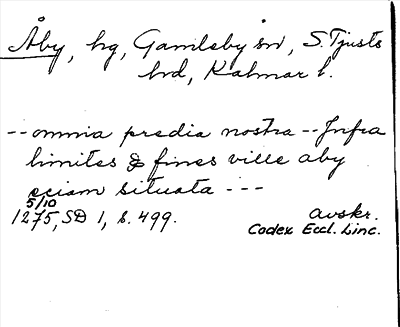 Åby, hg, Gamleby sn, S. Tjusts
hrd, Kalmar l.
-- omnia predia nostra -- Infra
limites & fines ville aby
eciam situata ---
5/10
1275, SD 1, s. 499.
avskr.
Codex Eccl. Linc.